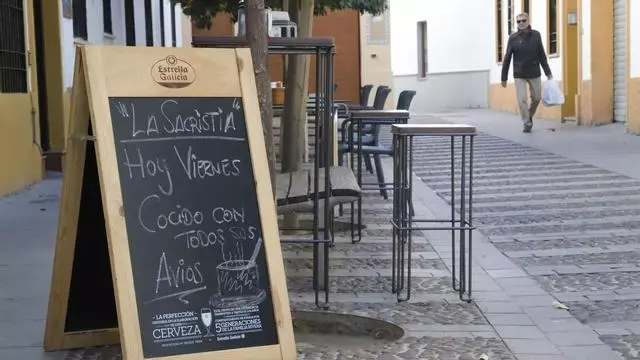 Estrella
Galicia
"LA SACRISTIA"
HOY VIERNES
COCIDO CON
TODOS SUS
AVIOS
LA PERFECCIÓN
CERVEZA
5
GENERACIONES
DE LA FAMILIA RIVERA
Estrella Galicia